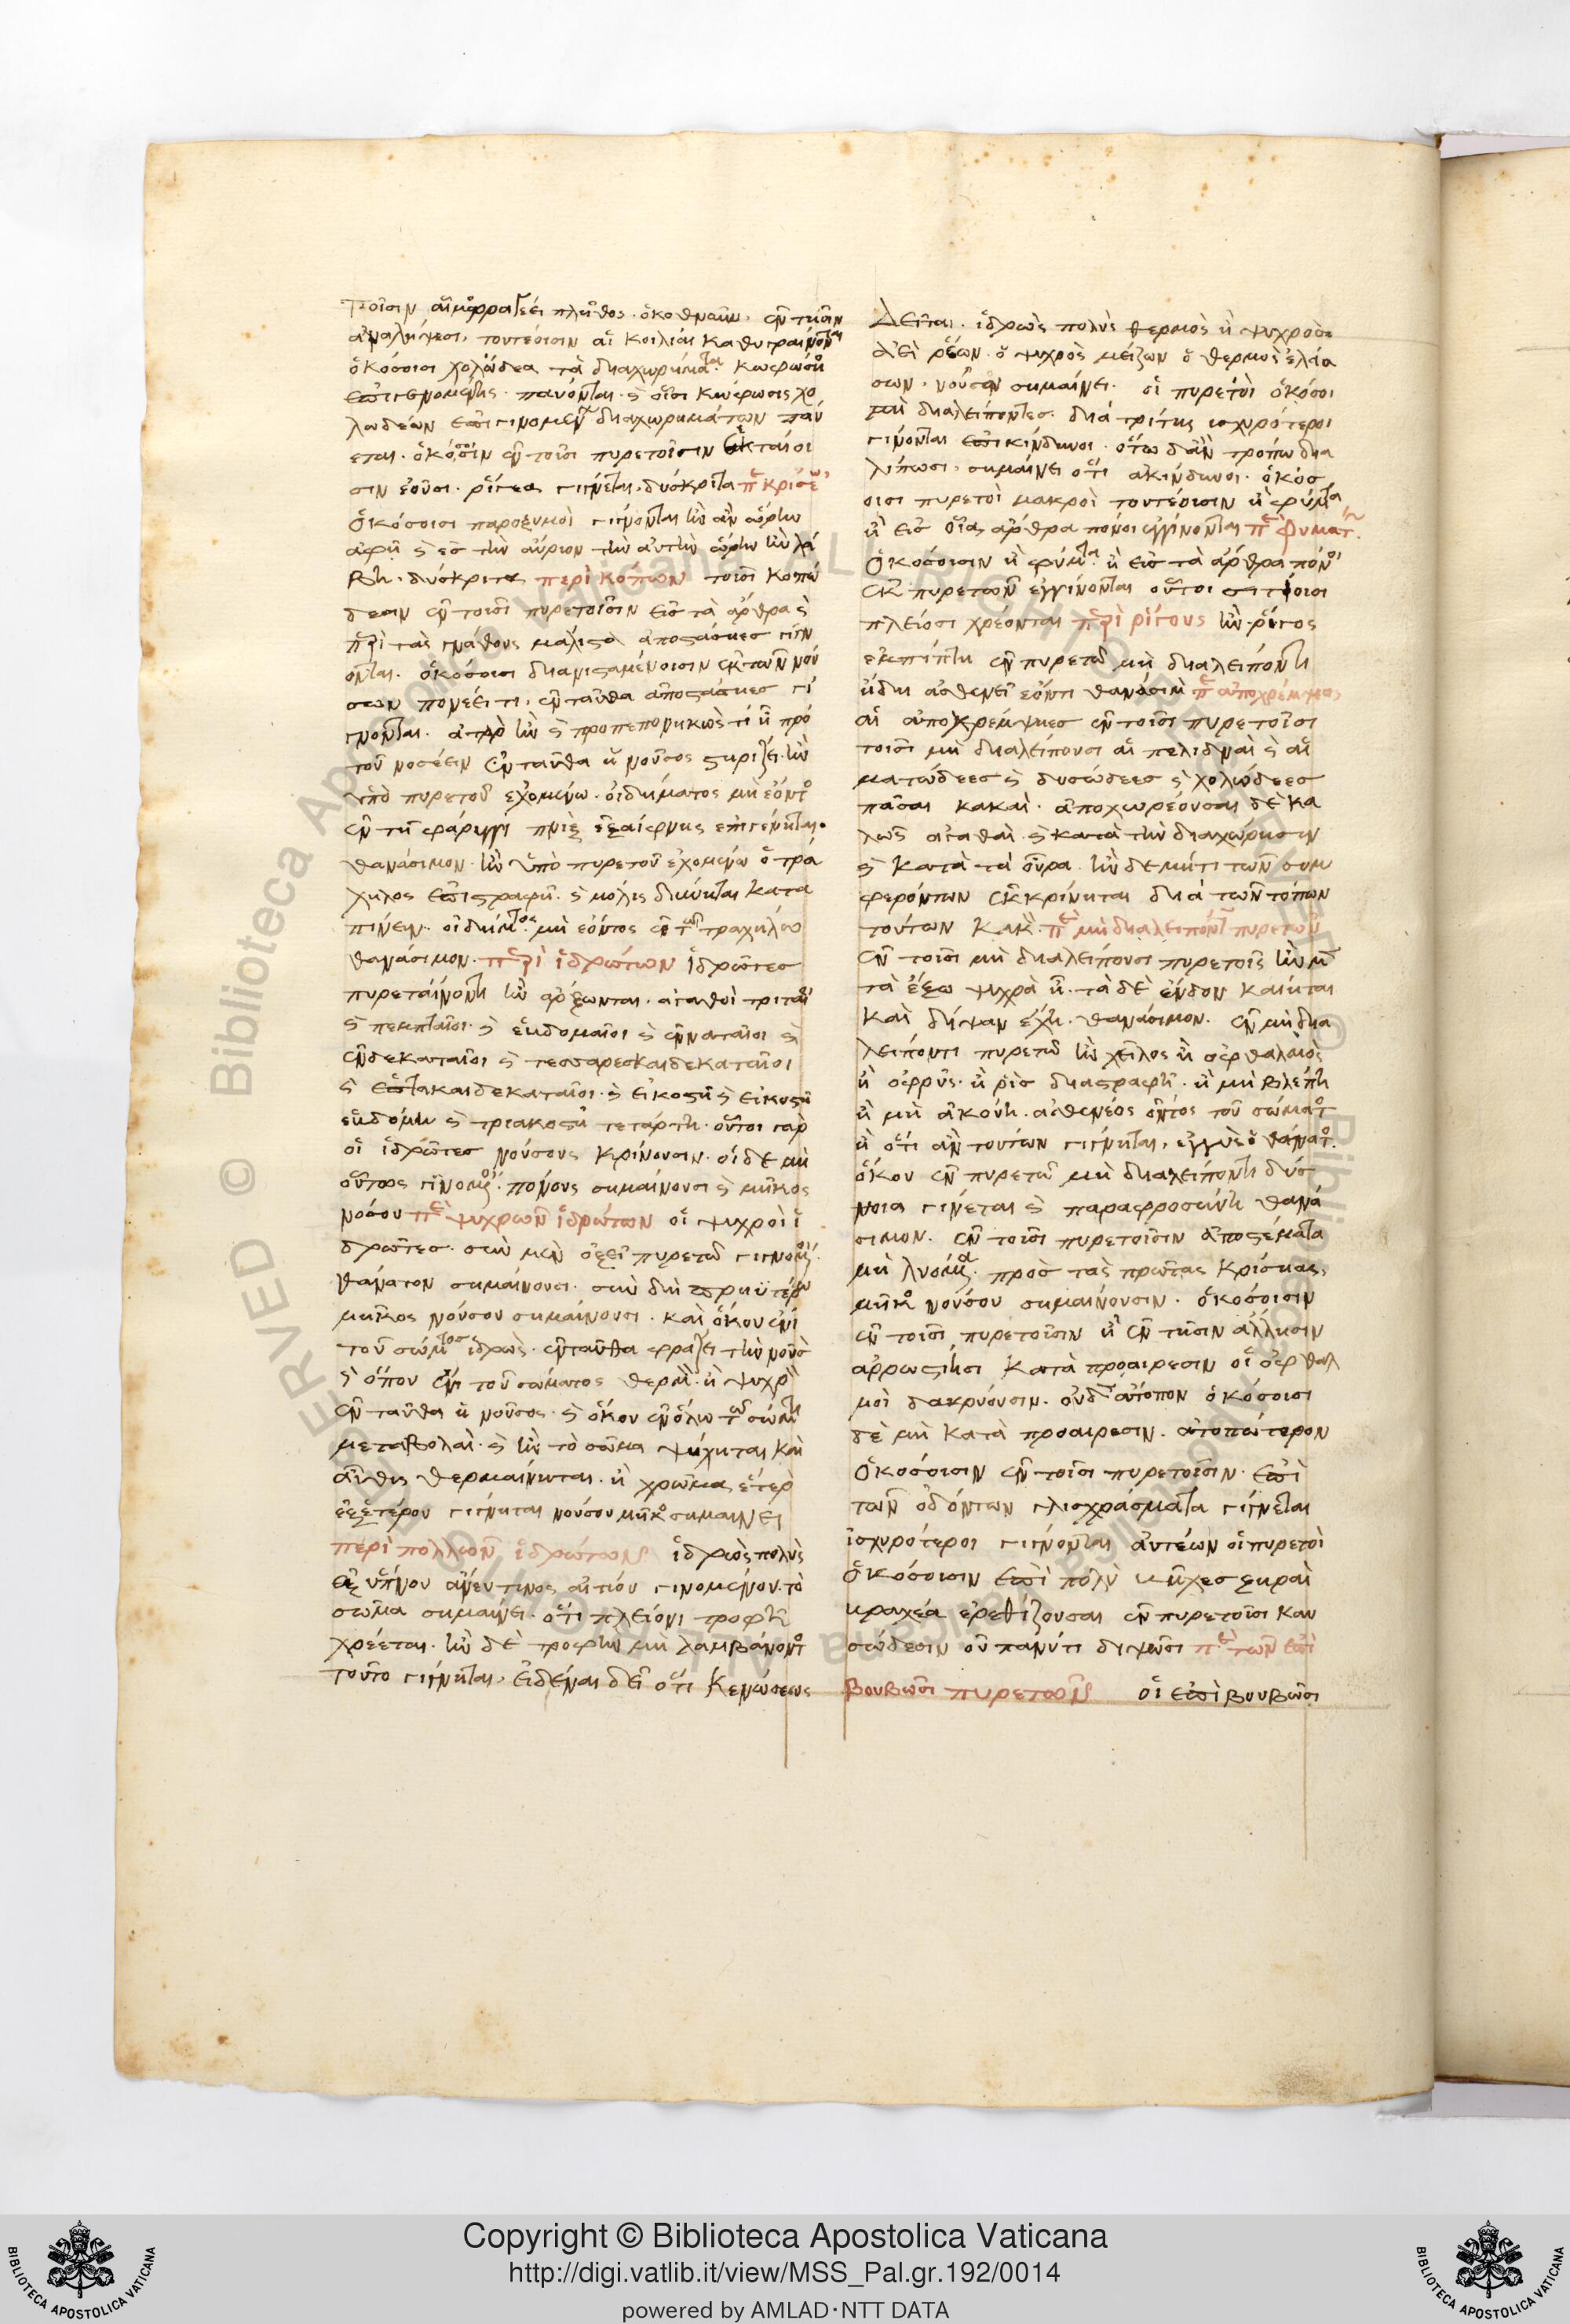 ποῖσιν αἱμορραγέει πλῆθος. ὁκοθνοῦν. ἐν τῆσιν
ἀναλήψεσι, τουτέοισιν αἱ κοιλίαι καθυγραίνονται
ὁκόσοισι χολώδεα τὰ διαχωρήματα. κωφώσι
ἐπιγενομένης. παύονται. καὶ οἷσι κώφωσις χο
λωδέων ἐπιγινομένων διαχωρημάτων παύ
εται. ὁκόσοισιν ἐν τοῖσι πυρετοῖσιν ἑκταίοι
σιν ἐοῦσι. ῥίγεα γίγνεται. δύσκριτα περὶ κρίσεων
Ὁκόσοισι παροξυσμοὶ γίγνονται ἢν ἂν ὥρην
ἀφῇ καὶ ἐς τὴν αὔριον τὴν αὐτὴν ὥρην ἢν λά
βῃ. δύσκριτα περὶ κόπων τοῖσι κοπώ
δεσιν ἐν τοῖσι πυρετοῖσιν εἰς τὰ ἄρθρα καὶ
περὶ τὰς γνάθους μάλιστα ἀποστάσιες γίγν
ονται. ὁκόσοισι διανισταμένοισιν ἐκ τῶν νού
σων πονέει τι, ἐνταῦθα ἀποστάσιες γί
γνονται. ἀτὰρ ἢν καὶ προπεπονηκώς τι ᾖ πρὸ
τοῦ νοσέειν ἐνταῦθα ἡ νοῦσος στηρίζει. ἢν
ὑπὸ πυρετοῦ ἐχομένῳ. οἰδήματος μὴ ἐόντος
ἐν τῇ φάρυγγι πνὶξ ἐξαίφνης ἐπιγένηται.
θανάσιμον. ἢν ὑπὸ πυρετοῦ ἐχομένῳ ὁ τρά
χηλος ἐπιστραφῇ. καὶ μόλις δύνηται κατα
πίνειν. οἰδήματος μὴ ἐόντος ἐν τῷ τραχήλῳ
θανάσιμον. περὶ ἱδρώτων ἱδρῶτες
πυρεταίνοντι ἢν ἄρξωνται. ἀγαθοὶ τριταῖοι
καὶ πεμπταῖοι. καὶ ἑβδομαῖοι καὶ ἐνναταῖοι καὶ
ἑνδεκαταῖοι καὶ τεσσαρεσκαιδεκαταῖοι
καὶ ἑπτακαιδεκαταῖοι. καὶ εἰκοστῇ καὶ εἰκοστῇ
ἑβδόμῃ καὶ τριακοστῇ τετάρτῃ. οὗτοι γὰρ
οἱ ἱδρῶτες νούσους κρίνουσιν. οἱ δὲ μὴ
οὕτως γινόμενοι. πόνους σημαίνουσι καὶ μῆκος
νόσου περὶ ψυχρῶν ἱδρώτων οἱ ψυχροὶ ἱ
δρῶτες. σὺν μὲν ὀξεῖ πυρετῷ γιγνόμενοι.
θάνατον σημαίνουσι. σὺν δὲ πρηϋτέρῳ
μῆκος νούσου σημαίνουσι. καὶ ὅκου ἔνι
τοῦ σώματος ἱδρὼς. ἐνταῦθα φράζει τὴν νοῦσον
καὶ ὅπου ἔνι τοῦ σώματος θερμὸν. ἢ ψυχρὸν
ἐνταῦθα ἡ νοῦσος. καὶ ὅκου ἐν ὅλῳ τῷ σώματι
μεταβολαὶ. καὶ ἢν τὸ σῶμα ψύχηται καὶ
αὖθις θερμαίνηται. ἢ χρῶμα ἕτερον
ἐξ ἑτέρου γίγνηται νούσου μῆκος σημαίνει
περὶ πολλῶν ἱδρώτων ἱδρὼς πολὺς
ἐξ ὕπνου ἄνευ τινος αἰτίου γινόμενον. τὸ
σῶμα σημαίνει. ὅτι πλείονι τροφῇ
χρέεται. ἢν δὲ τροφὴν μὴ λαμβάνοντι
τοῦτο γίγνηται, εἰδέναι δεῖ ὅτι κενώσεως
Δεῖται. ἱδρὼς πολὺς θερμὸς ἢ ψυχρὸς
ἀεὶ ῥέων. ὁ ψυχρὸς μείζων ὁ θερμὸς ἐλάσ
σων. νοῦσον σημαίνει. οἱ πυρετοὶ ὁκόσοι
μὴ διαλείποντες. διὰ τρίτης ἰσχυρότεροι
γίνονται ἐπικίνδυνοι. ὅτῳ δ' ἂν τρόπῳ δια
λίπωσι, σημαίνει ὅτι ἀκίνδυνοι. ὁκόσ
οισι πυρετοὶ μακροὶ τουτέοισιν ἢ φύματα
ἢ εἰς οἷα ἄρθρα πόνοι ἐγγίνονται περὶ φυμάτων.
Ὁκόσοισιν ἢ φύματα. ἢ εἰς τὰ ἄρθρα πόνοι
ἐκ πυρετῶν ἐγγίνονται οὗτοι σιτίοισι
πλείοσι χρέονται περὶ ῥίγους ἢν ῥῖγος
ἐμπίπτῃ ἐν πυρετῷ μὴ διαλείποντι
ἤδη ἀσθενεῖ ἐόντι θανάσιμον περὶ ἀποχρέμψιος
αἱ ἀποχρέμψιες ἐν τοῖσι πυρετοῖσι
τοῖσι μὴ διαλείπουσι αἱ πελιδναὶ καὶ αἱ
ματώδεες καὶ δυσώδεες καὶ χολώδεες
πᾶσαι κακαὶ. ἀποχωρέουσαι δὲ κα
λῶς ἀγαθαὶ. καὶ κατὰ τὴν διαχώρησιν
καὶ κατὰ τὰ οὖρα. ἢν δὲ μή τι τῶν συμ
φερόντων ἐκκρίνηται διὰ τῶν τόπων
τούτων κακὸν. περὶ μὴ διαλειπόντων πυρετῶν
ἐν τοῖσι μὴ διαλείπουσι πυρετοῖς ἢν μὲν
τὰ ἔξω ψυχρὰ ᾖ. τὰ δὲ ἔνδον καίηται
καὶ δίψαν ἔχῃ. θανάσιμον. ἐν μὴ δια
λείποντι πυρετῷ ἢν χεῖλος ἢ ὀφθαλμὸς
ἢ ὀφρῦς. ἢ ῥὶς διαστραφῇ. ἢ μὴ βλέπῃ
ἢ μὴ ἀκούῃ. ἀσθενέος ὄντος τοῦ σώματος
ἢ ὅτι ἂν τουτέων γίγνηται, ἐγγὺς ὁ θάνατος.
ὅκου ἐν πυρετῷ μὴ διαλείποντι δύσ
πνοια γίνεται καὶ παραφροσύνη θανά
σιμον. ἐν τοῖσι πυρετοῖσιν ἀποστέματα
μὴ λυόμενα. πρὸς τὰς πρώτας κρίσιας,
μῆκος νούσου σημαίνουσιν. ὁκόσοισιν
ἐν τοῖσι πυρετοῖσιν ἢ ἐν τῆσιν ἄλλησιν
ἀρρωστίησι κατὰ προαίρεσιν οἱ ὀφθαλ
μοὶ δακρύουσιν. οὐδὲν ἄτοπον ὁκόσοισι
δὲ μὴ κατὰ προαίρεσιν. ἀτοπώτερον
Ὁκόσοισιν ἐν τοῖσι πυρετοῖσιν. ἐπὶ
τῶν ὀδόντων γλισχράσματα γίγνεται
ἰσχυρότεροι γίγνονται αὐτέων οἱ πυρετοὶ
Ὁκόσοισιν ἐπὶ πολὺ βῆχες ξηραὶ
βραχέα ἐρεθίζουσαι ἐν πυρετοῖσι καυ
σώδεσιν οὐ πανύτι διψῶσι περὶ τῶν ἐπὶ
βουβῶσι πυρετῶν οἱ ἐπὶ βουβῶσι
Copyright © Biblioteca Apostolica Vaticana
http://digi.vatlib.it/view/MSS_Pal.gr.192/0014
powered by AMLAD·NTT DATA
BIBLIOTECA APOSTOLICA VATICANA
BIBLIOTECA APOSTOLICA VATICANA